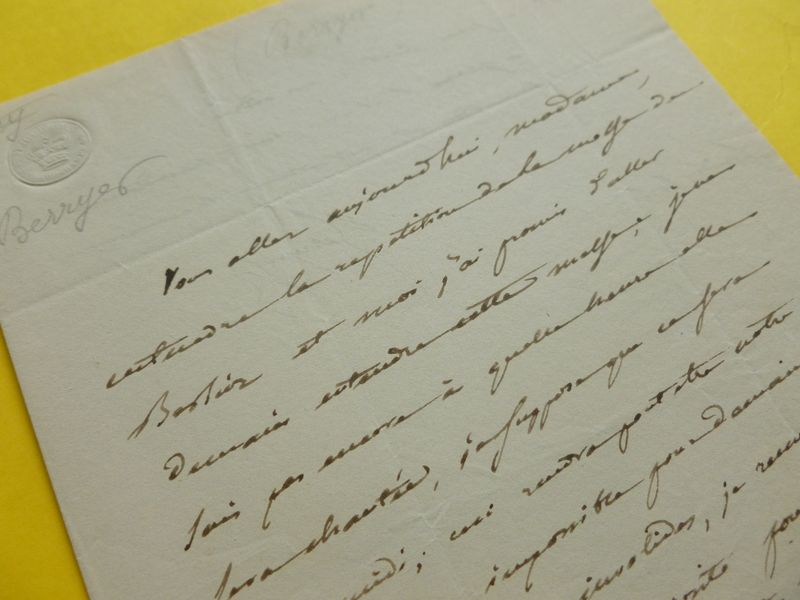 Berryer
Berryer
Vous allez aujourdhui, madame,
entendre la repetition de la messe de
Berlioz et moi j'ai promis d'aller
demain entendre cette messe, je ne
sais pas encore à quelle heure elle
sera chantée, je suppose que ce sera
midi; ceci rendra peut etre votre
impossible pour demain
invalides, je
pour